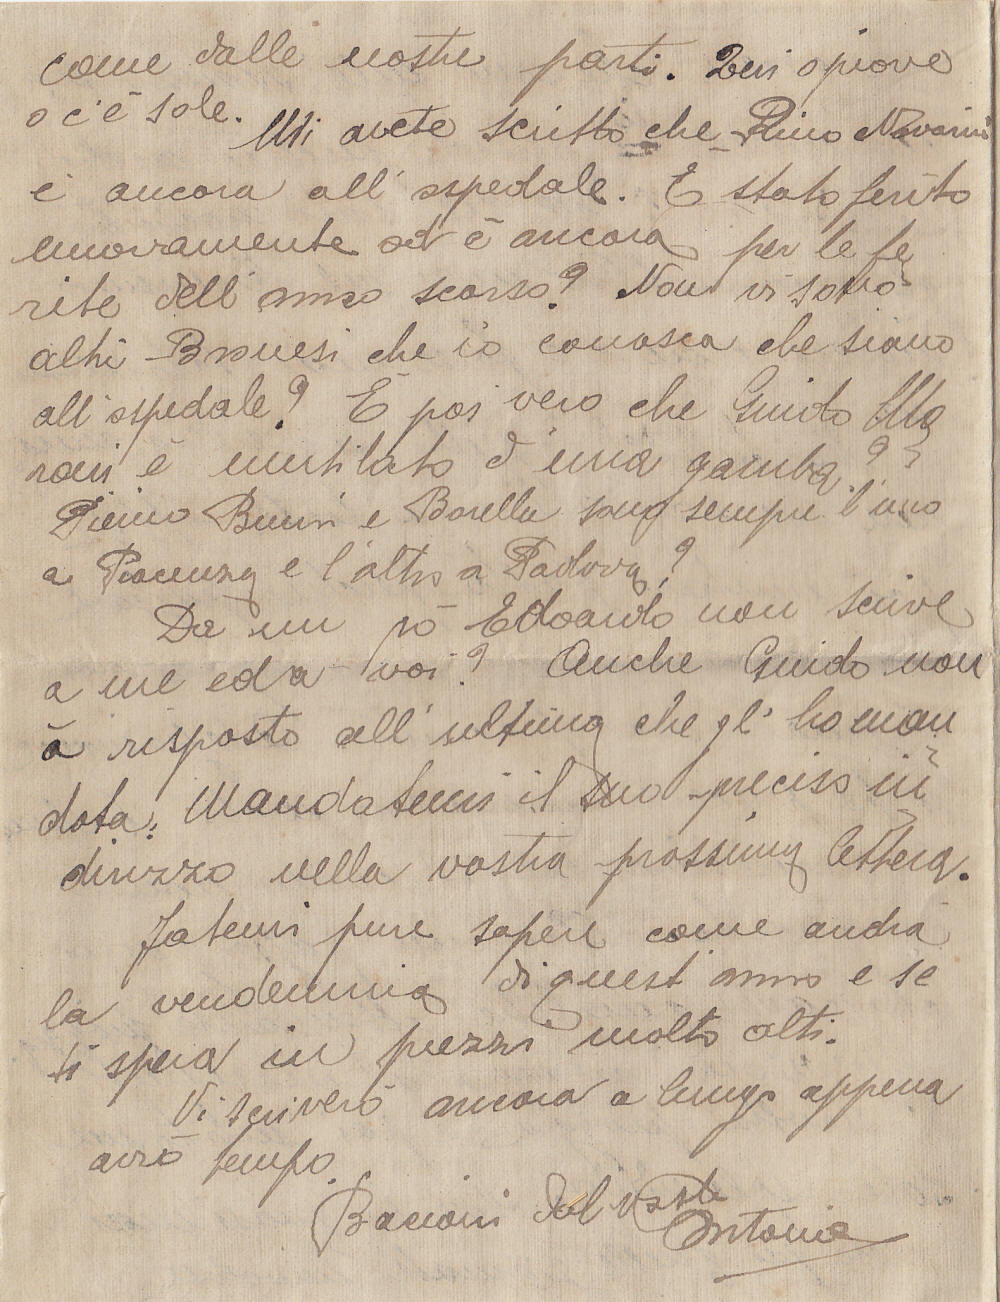 come dalle nostre parti. Qui o piove
o c'è sole.
Mi avete scritto che Pino Navarini
è ancora all'ospedale. È stato ferito
nuovamente od è ancora per le fe
rite dell'anno scorso? Non vi sono
altri Bronesi che io conosca che siano
all'ospedale? È poi vero che Guido Ma
roni è mutilato d'una gamba?
Pierino Buvini e Borella sono sempre l'uno
a Piacenza e l'altro a Padova?
Da un pò Edoardo non scrive
a me ed a voi? Anche Guido non
à risposto all'ultima che gli ho man
data. Mandatemi il suo preciso in
dirizzo nella vostra prossima lettera.
Fatemi pure sapere come andrà
la vendemmia di quest'anno e se
si spera in prezzi molto alti.
Vi scriverò ancora a lungo appena
avrò tempo.
Bacioni dal vostro
Antonio